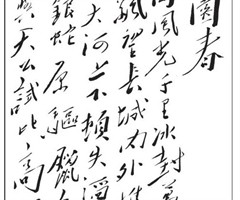 園春
風光千里冰封萬
飄望長城內外惟
大河上下頓失滔
銀蛇原驅臘
與天公試比高